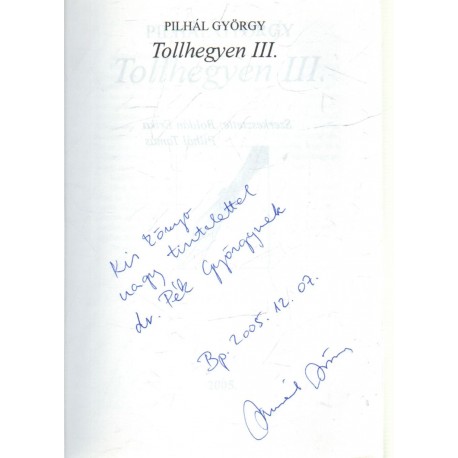 PILHÁL GYÖRGY
Tollhegyen III.
Kis könyv
nagy tisztelettel
dr. Pék Györgynek
Bp. 2005. 12. 07.